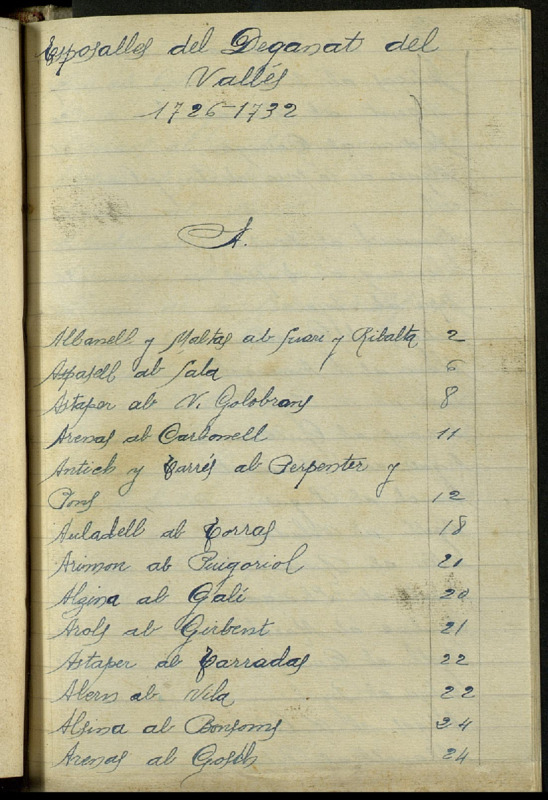 Esposalles del Deganat del
Vallés
1726-1732
A.
Albanell y Maltas ab Suari y Ribalta 2
Aspasell ab Sala 6
Astaper ab N. Golobrans 8
Arenas ab Carbonell 11
Antich y Tarrés ab Perpenter y
Pons 12
Auladell ab Torras 18
Arimon ab Puigoriol 21
Alzina ab Galí 20
Arols ab Girbent 21
Astaper ab Tarradas 22
Alern ab Vila 22
Alsina ab Bonsoms 24
Arenas ab Gosch 24